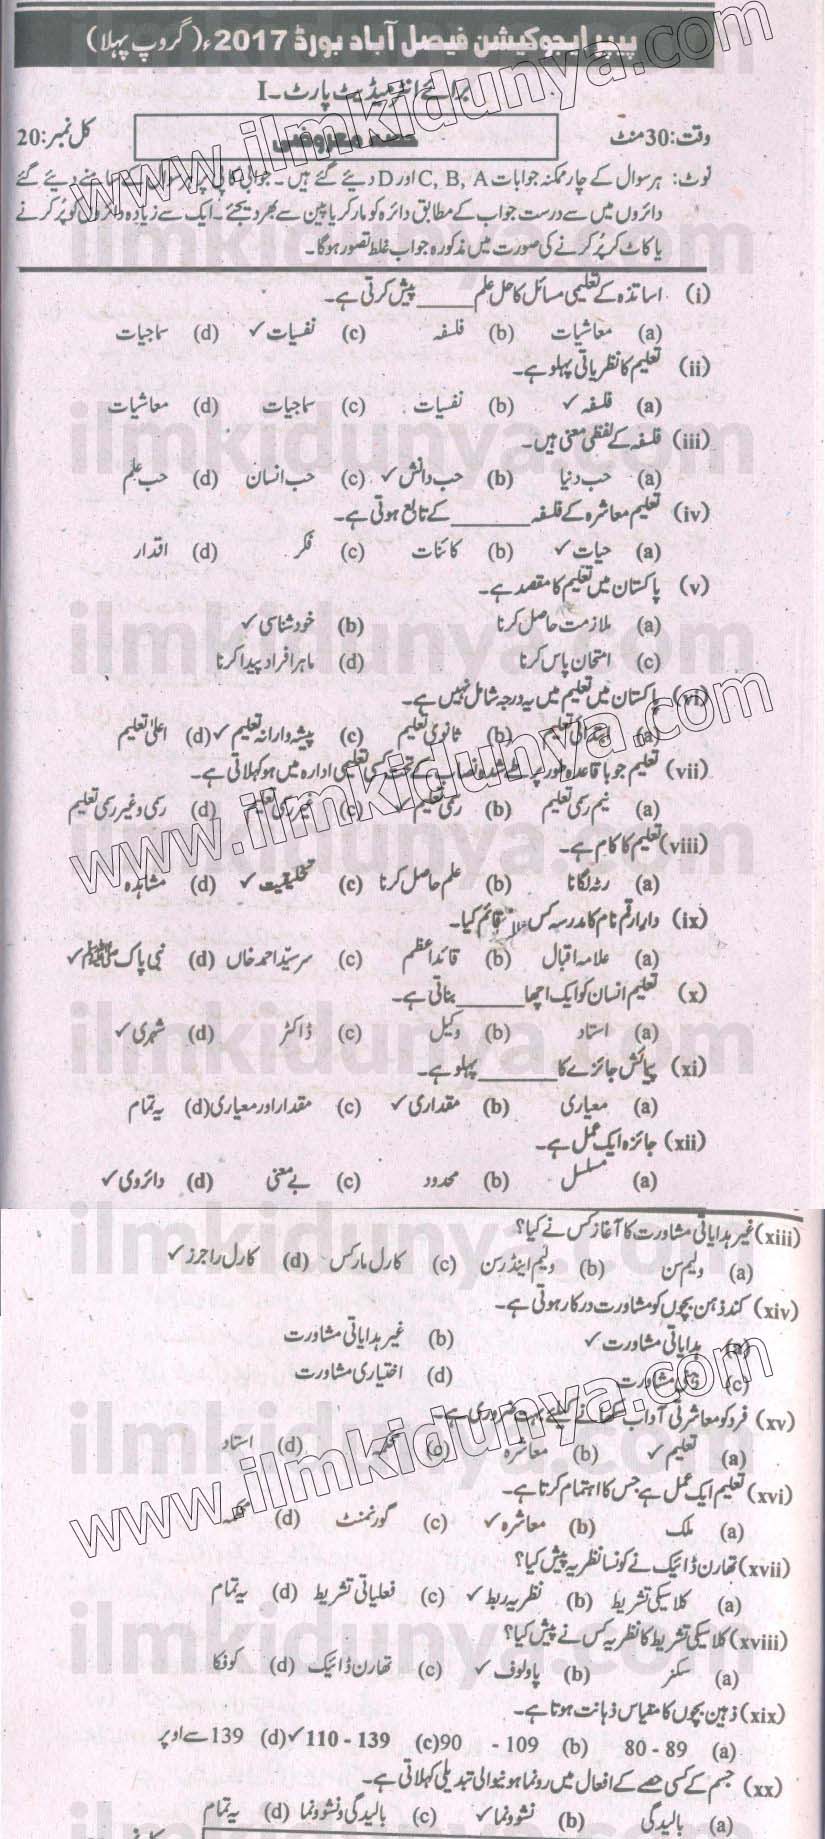 پیپر ایجوکیشن فیصل آباد بورڈ 2017ء (گروپ پہلا)
برائے انٹرمیڈیٹ پارٹ ۔I
وقت: 30 منٹ حصہ معروضی کل نمبر: 20
نوٹ: ہر سوال کے چار ممکنہ جوابات C, B, A اور D دیے گئے ہیں۔ جوابی کاپی پر ہر سوال کے سامنے دیئے گئے
دائروں میں سے درست جواب کے مطابق دائرہ کو مارکر یا پین سے بھر دیجئے۔ ایک سے زیادہ دائروں کو پُر کرنے
یا کاٹ کر پُر کرنے کی صورت میں مذکورہ جواب غلط تصور ہوگا۔
(i) اساتذہ کے تعلیمی مسائل کا حل علم _____ پیش کرتی ہے۔
(a) معاشیات (b) فلسفہ (c) نفسیات ✓ (d) سماجیات
(ii) تعلیم کا نظریاتی پہلو ہے۔
(a) فلسفہ ✓ (b) نفسیات (c) سماجیات (d) معاشیات
(iii) فلسفہ کے لفظی معنی ہیں۔
(a) حب دنیا (b) حب دانش ✓ (c) حب انسان (d) حب علم
(iv) تعلیم معاشرہ کے فلسفہ _______ کے تابع ہوتی ہے۔
(a) حیات ✓ (b) کائنات (c) فکر (d) اقدار
(v) پاکستان میں تعلیم کا مقصد ہے۔
(a) ملازمت حاصل کرنا (b) خود شناسی ✓
(c) امتحان پاس کرنا (d) ماہر افراد پیدا کرنا
(vi) پاکستان میں تعلیم میں یہ درجہ شامل نہیں ہے۔
(a) ابتدائی تعلیم (b) ثانوی تعلیم (c) پیشہ وارانہ تعلیم ✓ (d) اعلیٰ تعلیم
(vii) تعلیم جو باقاعدہ طور پر طے شدہ نصاب کے تحت کسی تعلیمی ادارہ میں ہو کہلاتی ہے۔
(a) نیم رسمی تعلیم (b) رسمی تعلیم ✓ (c) غیر رسمی تعلیم (d) رسمی و غیر رسمی تعلیم
(viii) تعلیم کا کام ہے۔
(a) رٹہ لگانا (b) علم حاصل کرنا (c) تخلیقیت ✓ (d) مشاہدہ
(ix) دار ارقم نام کا مدرسہ کس نے قائم کیا۔
(a) علامہ اقبال (b) قائد اعظم (c) سر سیّد احمد خاں (d) نبی پاک ﷺ ✓
(x) تعلیم انسان کو ایک اچھا _______ بناتی ہے۔
(a) استاد (b) وکیل (c) ڈاکٹر (d) شہری ✓
(xi) پیمائش جائزے کا _______ پہلو ہے۔
(a) معیاری (b) مقداری ✓ (c) مقدار اور معیاری (d) یہ تمام
(xii) جائزہ ایک عمل ہے۔
(a) مسلسل (b) محدود (c) بے معنی (d) دائروی ✓
(xiii) غیر ہدایاتی مشاورت کا آغاز کس نے کیا؟
(a) ولیم سن (b) ولیم اینڈرسن (c) کارل مارکس (d) کارل راجرز ✓
(xiv) کند ذہن بچوں کو مشاورت درکار ہوتی ہے۔
(a) ہدایاتی مشاورت ✓ (b) غیر ہدایاتی مشاورت
(c) مشاورت (d) اختیاری مشاورت
(xv) فرد کو معاشرتی آداب سکھانے کیلئے بہت ضروری ہے۔
(a) تعلیم ✓ (b) معاشرہ (c) (d) استاد
(xvi) تعلیم ایک عمل ہے جس کا اہتمام کرتا ہے۔
(a) ملک (b) معاشرہ ✓ (c) گورنمنٹ (d)
(xvii) تھارن ڈائیک نے کونسا نظریہ پیش کیا؟
(a) کلاسیکی تشریط (b) نظریہ ربط ✓ (c) فعلیاتی تشریط (d) یہ تمام
(xviii) کلاسیکی تشریط کا نظریہ کس نے پیش کیا؟
(a) سکنر (b) پاولوف ✓ (c) تھارن ڈائیک (d) کوفکا
(xix) ذہین بچوں کا مقیاس ذہانت ہوتا ہے۔
(a) 80 - 89 (b) 90 - 109 (c) 110 - 139 ✓ (d) 139 سے اوپر
(xx) جسم کے کسی حصے کے افعال میں رونما ہونیوالی تبدیلی کہلاتی ہے۔
(a) بالیدگی (b) نشوونما ✓ (c) بالیدگی و نشوونما (d) یہ تمام
www.ilmkidunya.com
ilmkidunya.com